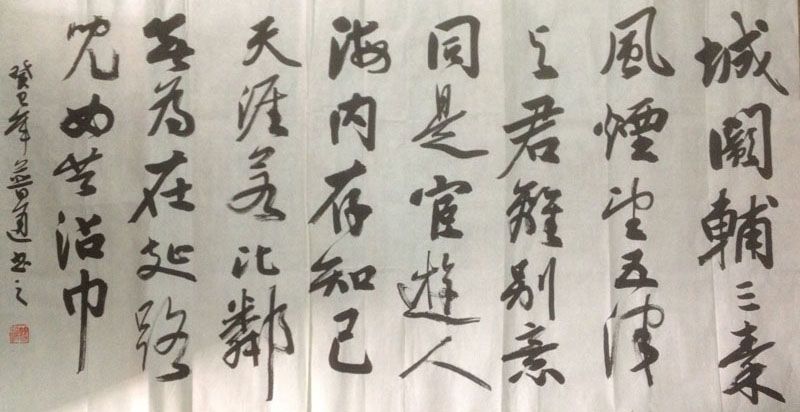 城闕輔三秦
風煙望五津
与君離别意
同是宦遊人
海内存知己
天涯若比鄰
無為在歧路
児女共沾巾
癸巳年普通书之